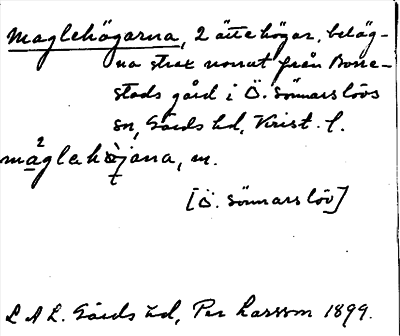 Maglehögarna, 2 ättehögar, beläg-
na strax norrut från Borre-
stads gård i Ö. Sönnarslövs
sn, Gärds hd, Krist. l.
mảglahöjana, m.
[Ö. Sönnarslöv]
L A L. Gärds hd, Per Larsson 1899.